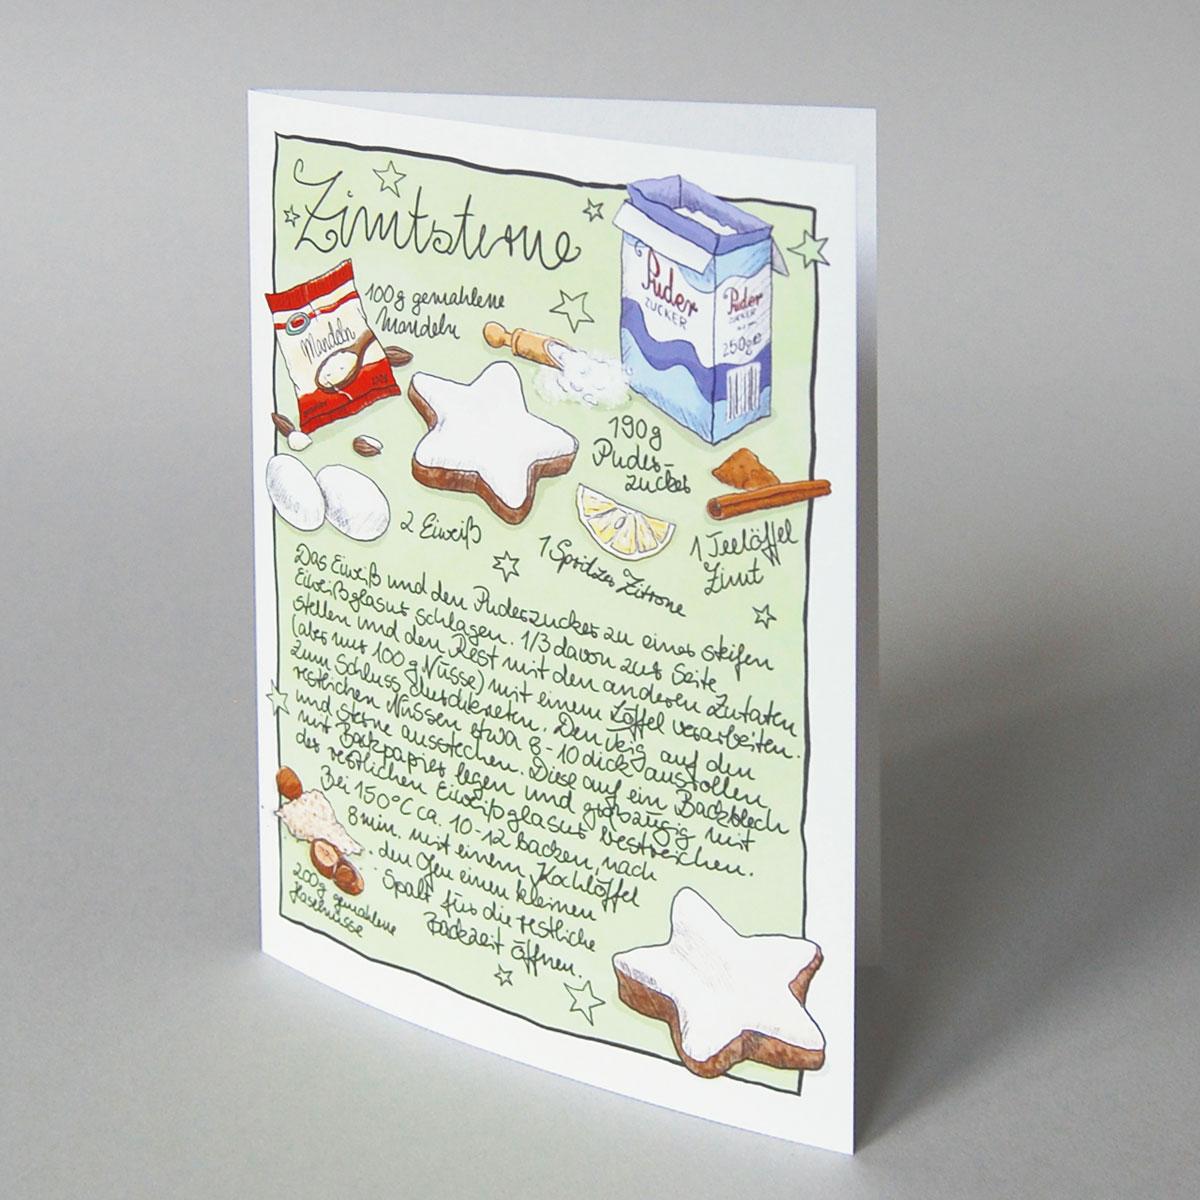 Zimtsterne
100g gemahlene
Mandeln
Mandeln
Puder
ZUCKER
Puder
ZUCKER
250g e
190g
Puder-
zucker
2 Eiweiß
1 Spritzer Zitrone
1 Teelöffel
Zimt
Das Eiweiß und den Puderzucker zu einer steifen
Eiweißglasur schlagen. 1/3 davon zur Seite
stellen und den Rest mit den anderen Zutaten
(aber nur 100 g Nüsse) mit einem Löffel verarbeiten.
Zum Schluss durchkneten. Den Teig auf den
restlichen Nüssen etwa 8-10 dick ausrollen
und Sterne ausstechen. Diese auf ein Backblech
mit Backpapier legen und großzügig mit
der restlichen Eiweißglasur bestreichen.
Bei 150°C ca. 10-12 backen, nach
8 min. mit einem Kochlöffel
den Ofen einen kleinen
Spalt für die restliche
Backzeit öffnen.
200g gemahlene
Haselnüsse